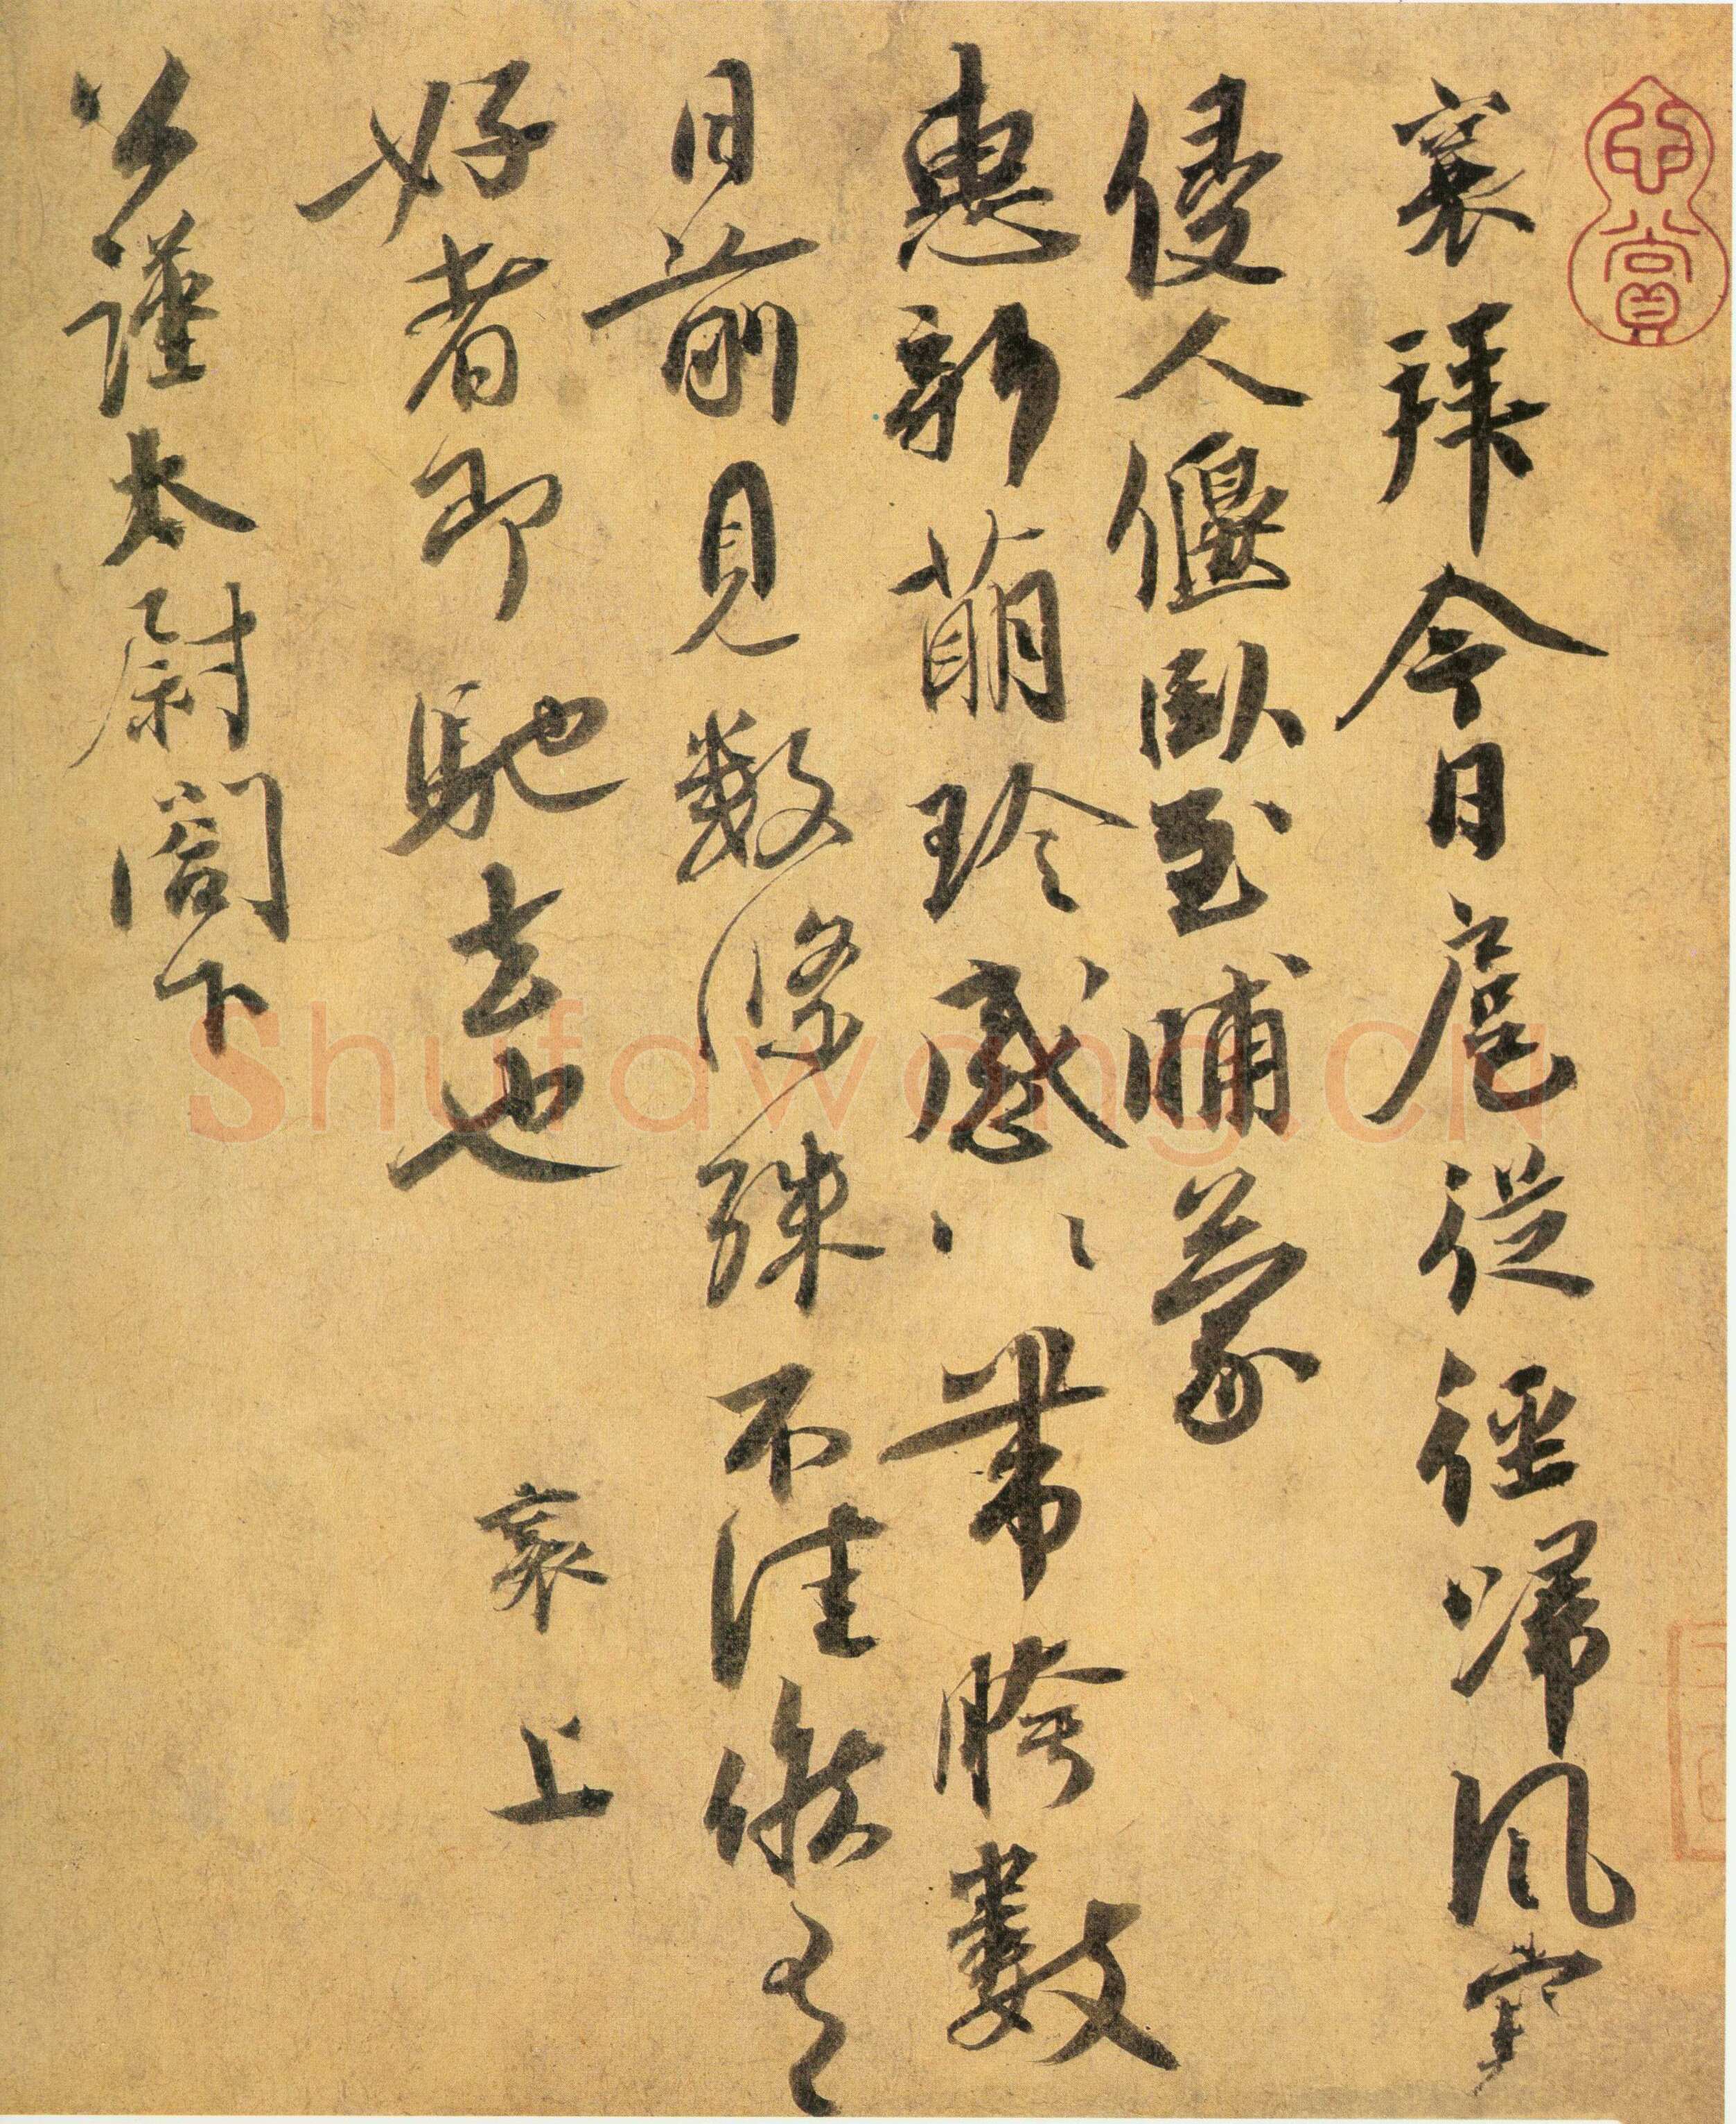 襄拜今日扈從徑歸風寒
侵人偃臥至晡蒙
惠新萠珍感〻帶胯數
日前見數條殊不佳候有
好者即馳去也 襄上
公謹太尉閤下
Shufawang.CN